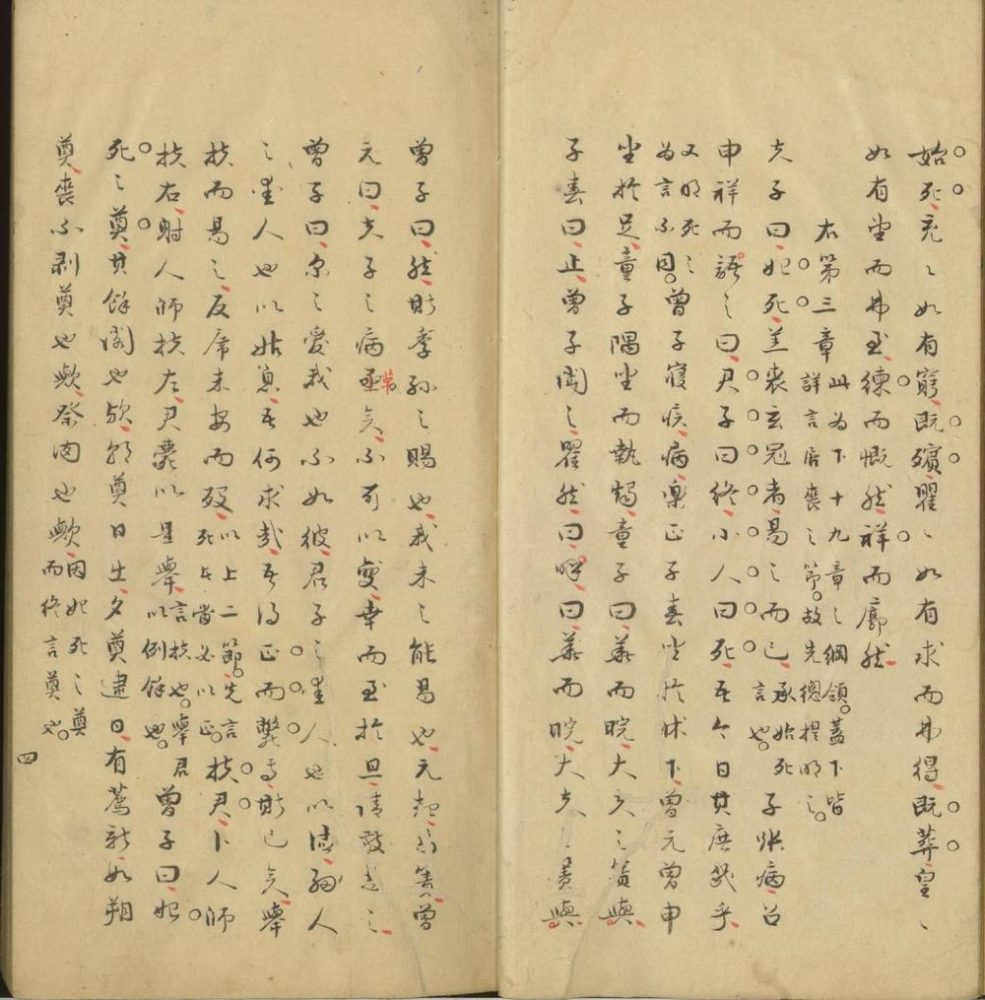 始死充〻如有窮既殯瞿〻如有求而弗得既葬皇〻
如有望而弗至練而慨然祥而廓然
右第三章此為下十九章之綱領蓋下皆詳言居喪之節故先總提明之
夫子曰始死羔裘玄冠者易之而已承始死言也子張病召
申祥而語之曰君子曰終小人曰死吾今日其庶幾乎
又明死之為言不同曾子寢疾病樂正子春坐於牀下曾元曾申
坐於足童子隅坐而執燭童子曰華而睆大夫之簀與
子春曰止曾子聞之瞿然曰呼曰華而睆大夫之簀與
曾子曰然斯季孫之賜也我未之能易也元起易簀曾
元曰夫子之病革矣不可以變幸而至於旦請敬易之
曾子曰尔之愛我也不如彼君子之愛人也以德細人
之愛人也以姑息吾何求哉吾得正而斃焉斯已矣舉
扶而易之反席未安而歿以上二節先言死者當必以正扶君卜人師
扶右射人師扶左君薨以是舉言扶也舉君以例餘也曾子曰始
死之奠其餘閣也歟朝奠日出夕奠逮日有薦新如朔
奠喪不剥奠也歟祭肉也歟因始死之奠而終言奠也
四